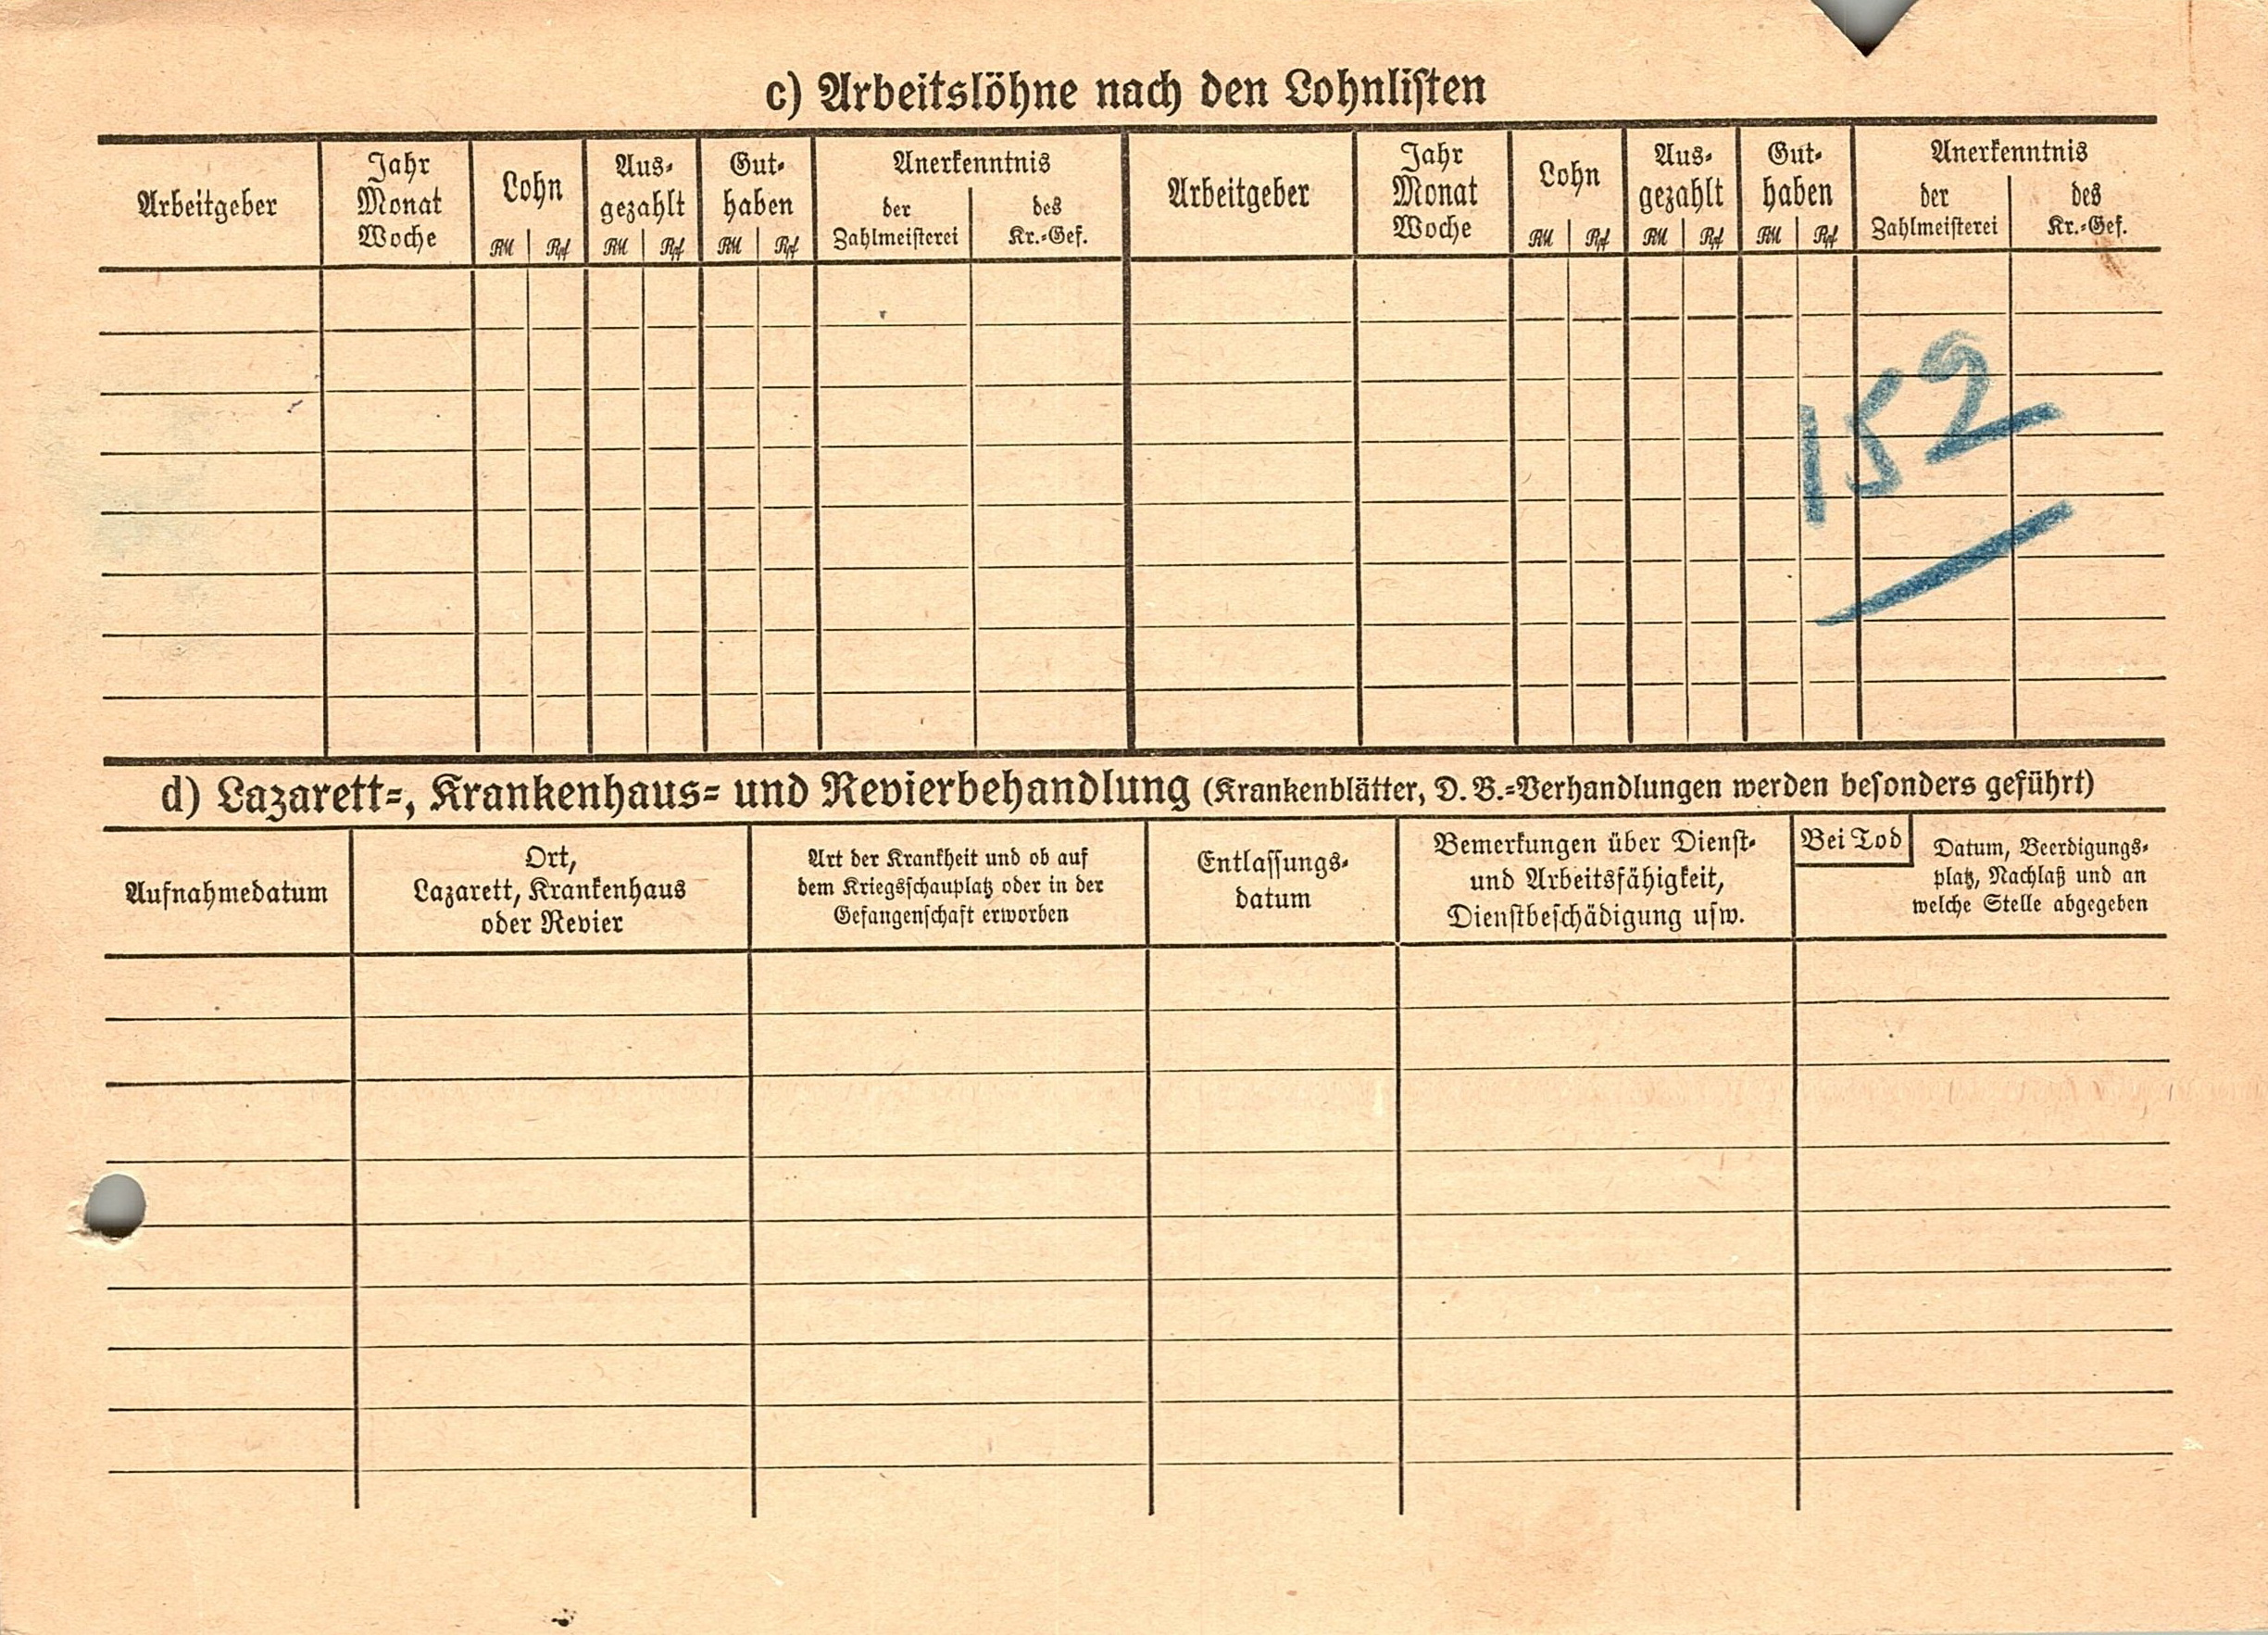 c) Arbeitslöhne nach den Lohnlisten
Arbeitgeber
Jahr
Monat
Woche
Lohn
RM Rpf
Aus-
gezahlt
RM Rpf
Gut-
haben
RM Rpf
Anerkenntnis
der
Zahlmeisterei
des
Kr.-Gef.
Arbeitgeber
Jahr
Monat
Woche
Lohn
RM Rpf
Aus-
gezahlt
RM Rpf
Gut-
haben
RM Rpf
Anerkenntnis
der
Zahlmeisterei
des
Kr.-Gef.
152
d) Lazarett-, Krankenhaus- und Revierbehandlung (Krankenblätter, D. B.-Verhandlungen werden besonders geführt)
Aufnahmedatum
Ort,
Lazarett, Krankenhaus
oder Revier
Art der Krankheit und ob auf
dem Kriegsschauplatz oder in der
Gefangenschaft erworben
Entlassungs-
datum
Bemerkungen über Dienst-
und Arbeitsfähigkeit,
Dienstbeschädigung usw.
Bei Tod
Datum, Beerdigungs-
platz, Nachlaß und an
welche Stelle abgegeben